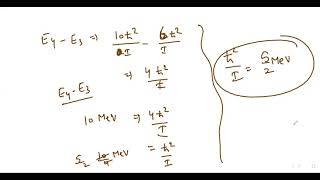 E₄ - E₃ ⇒ 10ħ²/I - 6ħ²/I
⇒ 4ħ²/I
E₄ - E₃
10 MeV ⇒ 4ħ²/I
5/2 10/4 MeV = ħ²/I
ħ²/I = 5/2 MeV